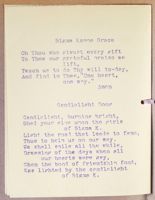 Sigma Kappa Grace
Oh Thou who givest every gift
To Thee our grateful praise we
lift,
Teach us to do Thy will to-day,
And find in Thee, "One heart,
one way."
Candlelight Song
Candlelight, burning bright,
Shed your glow upon the girls
of Sigma K.
Light the road that leads to fame,
Thus to help us on our way.
We shall smile all the while,
Dreaming of the days when all
our hearts were gay,
When the bond of friendship fast,
Was lighted by the candlelight
of Sigma K.